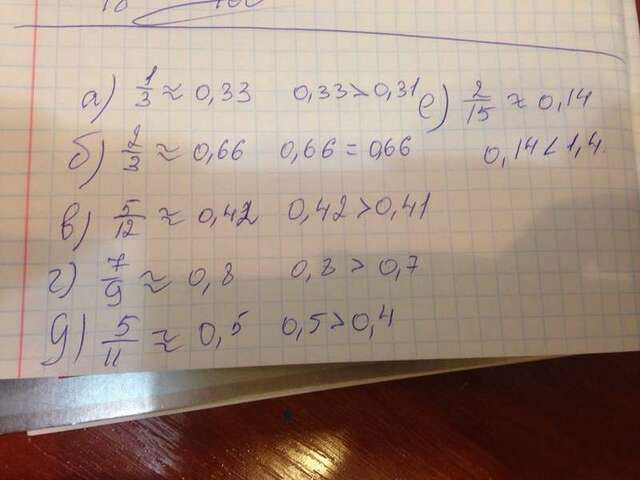 а) 1/3 ≈ 0,33 0,33>0,31 е) 2/15 ≈ 0,14
б) 2/3 ≈ 0,66 0,66 = 0,66 0,14<1,4
в) 5/12 ≈ 0,42 0,42>0,41
г) 7/9 ≈ 0,8 0,8 > 0,7
д) 5/11 ≈ 0,5 0,5>0,4